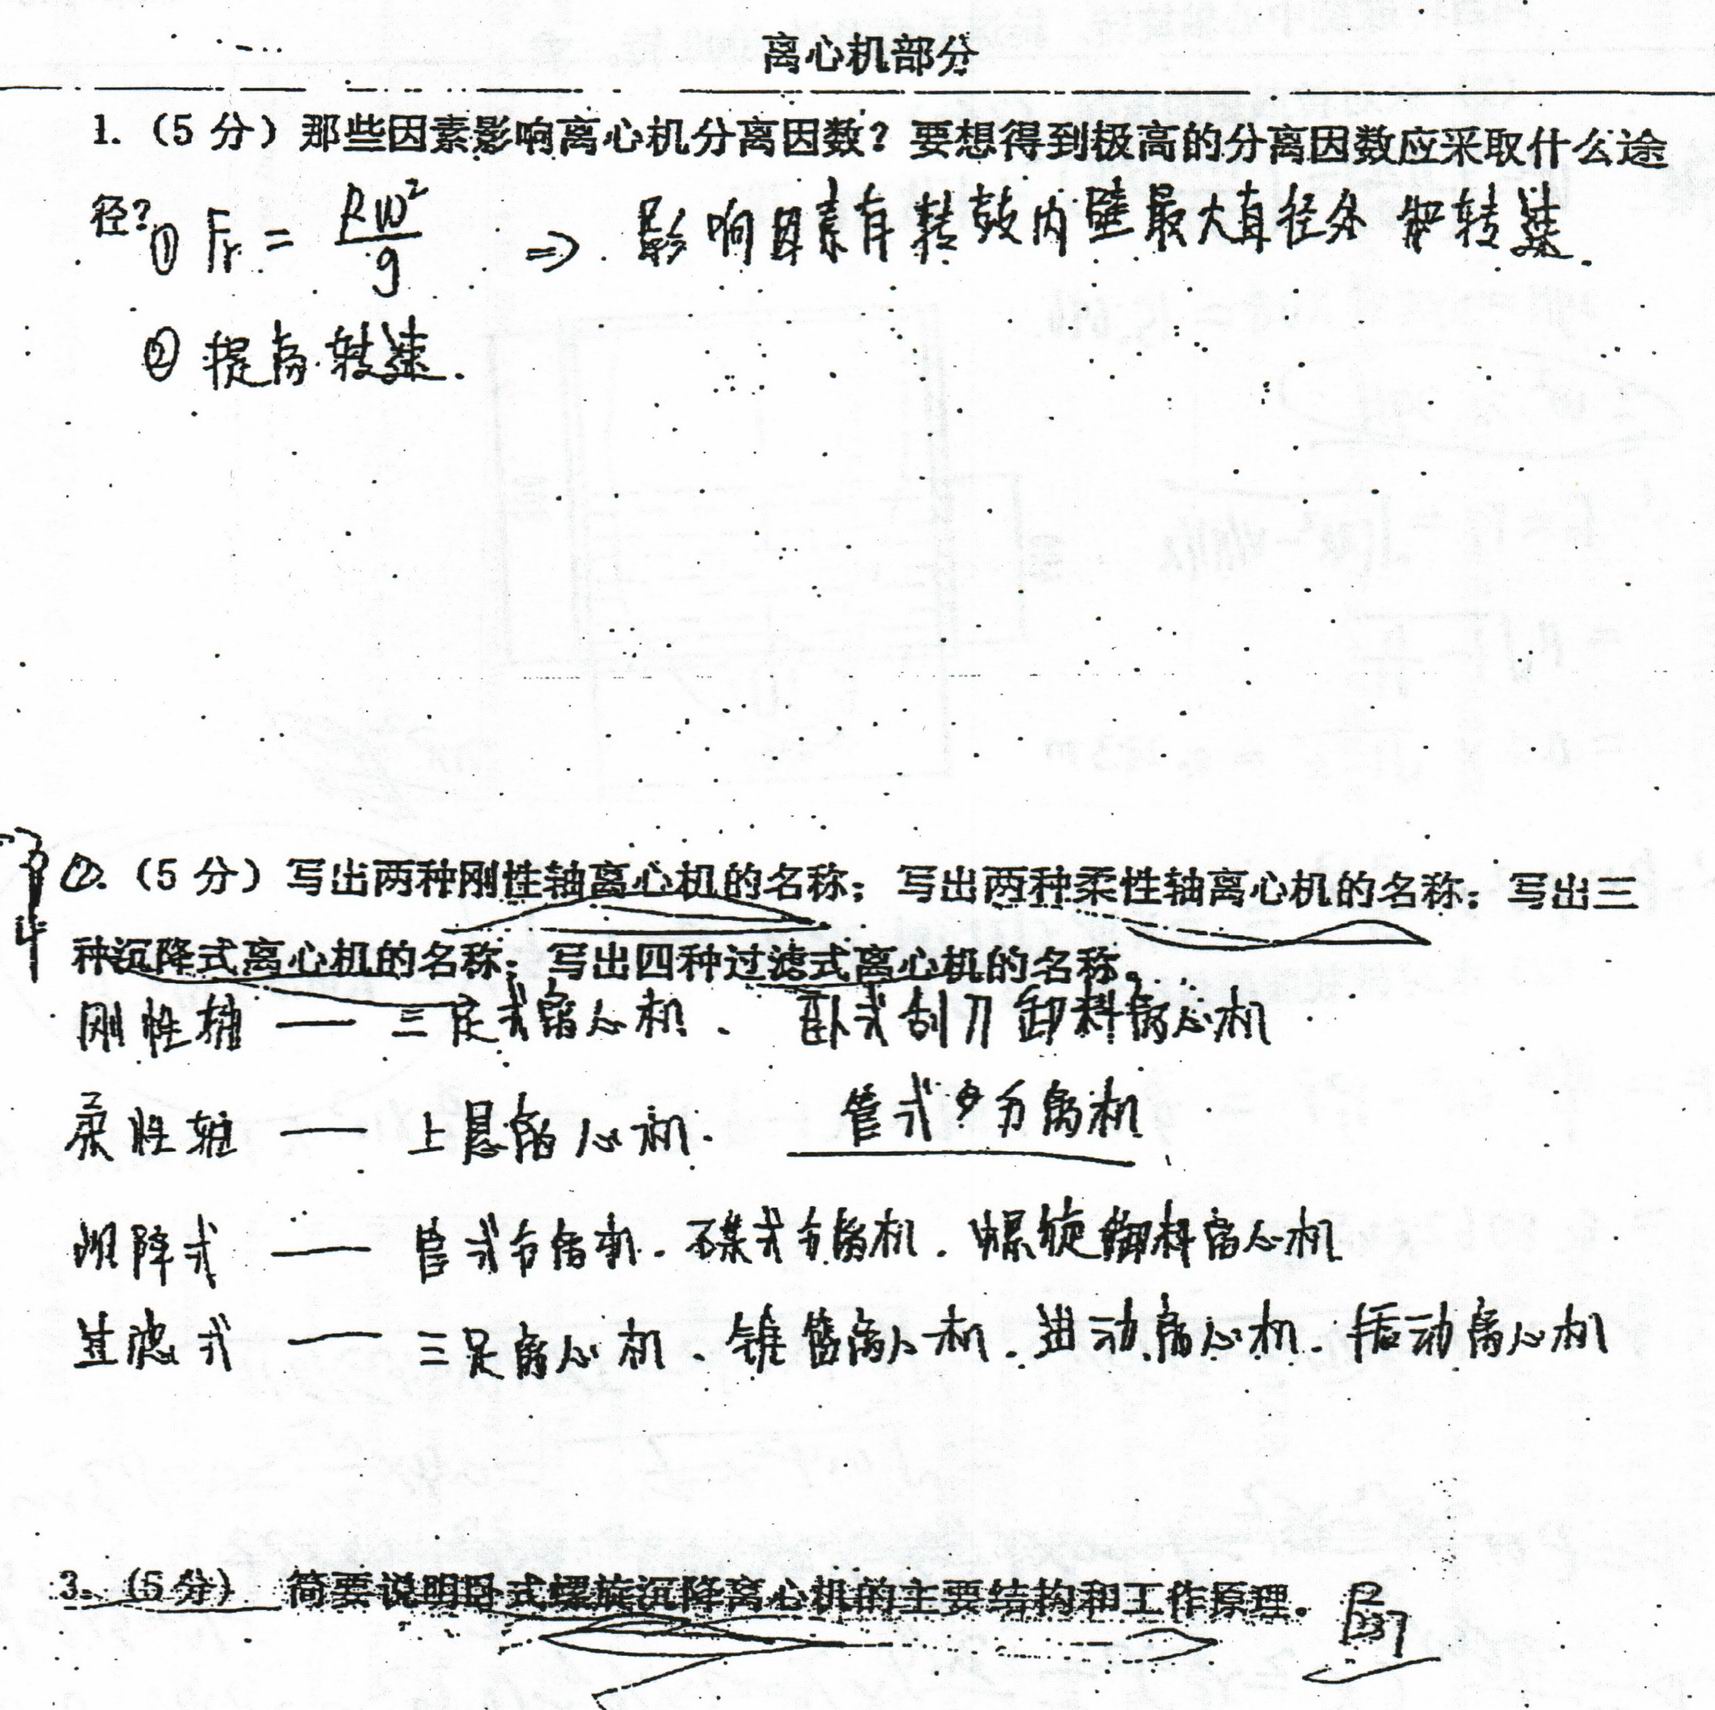 离心机部分
1.（5 分）那些因素影响离心机分离因数？要想得到极高的分离因数应采取什么途
径？
① Fr = Rω²/g ⇒ 影响因素有转鼓内壁最大直径 转速.
② 提高转速.
2.（5 分）写出两种刚性轴离心机的名称；写出两种柔性轴离心机的名称；写出三
种沉降式离心机的名称；写出四种过滤式离心机的名称。
刚性轴 — 三足式离心机、卧式刮刀卸料离心机
柔性轴 — 上悬离心机. 管式分离机
沉降式 — 管式分离机. 碟式分离机. 螺旋卸料离心机
过滤式 — 三足离心机、锥篮离心机. 进动离心机. 振动离心机
3.（5 分） 简要说明卧式螺旋沉降离心机的主要结构和工作原理。